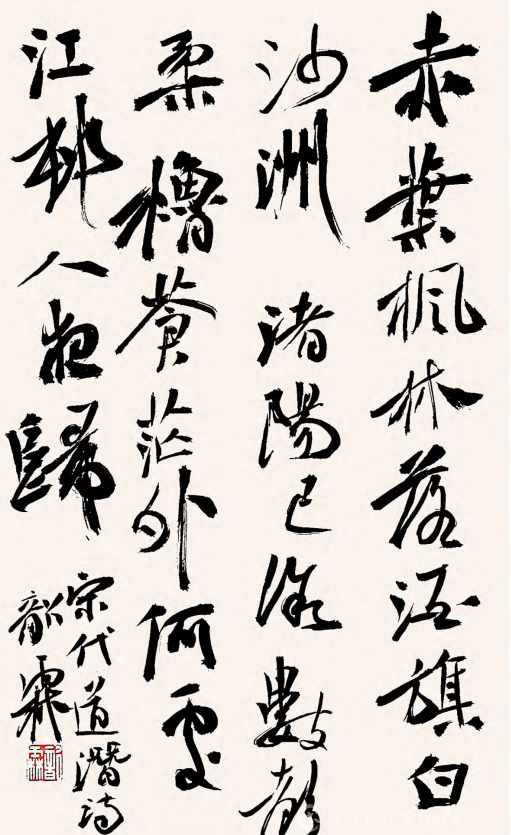 赤葉楓林落酒旗白
沙洲渚陽已微數聲
柔櫓蒼茫外何處
江邨人夜歸
宋代道潛詩
韶霖